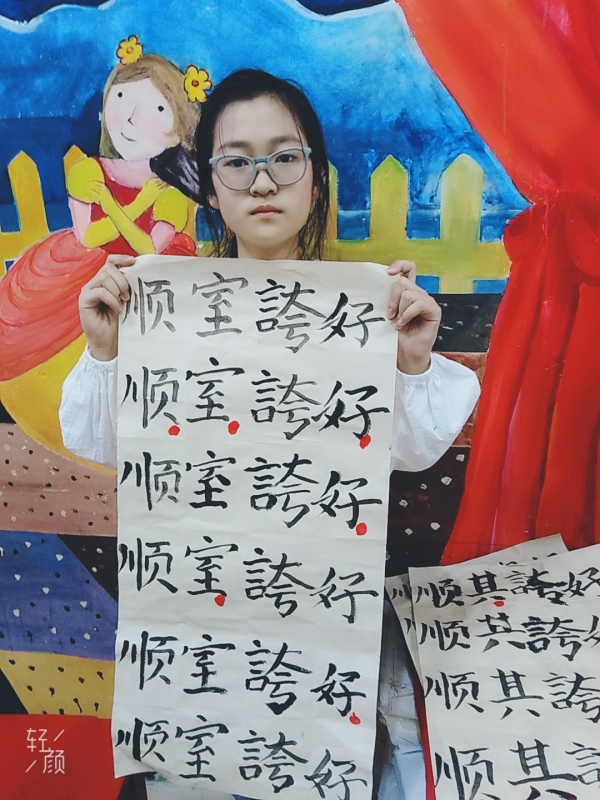 顺室誇好
顺室誇好
顺室誇好
顺室誇好
顺室誇好
顺室誇好
顺其誇好
顺其誇好
顺其誇
顺其
轻颜